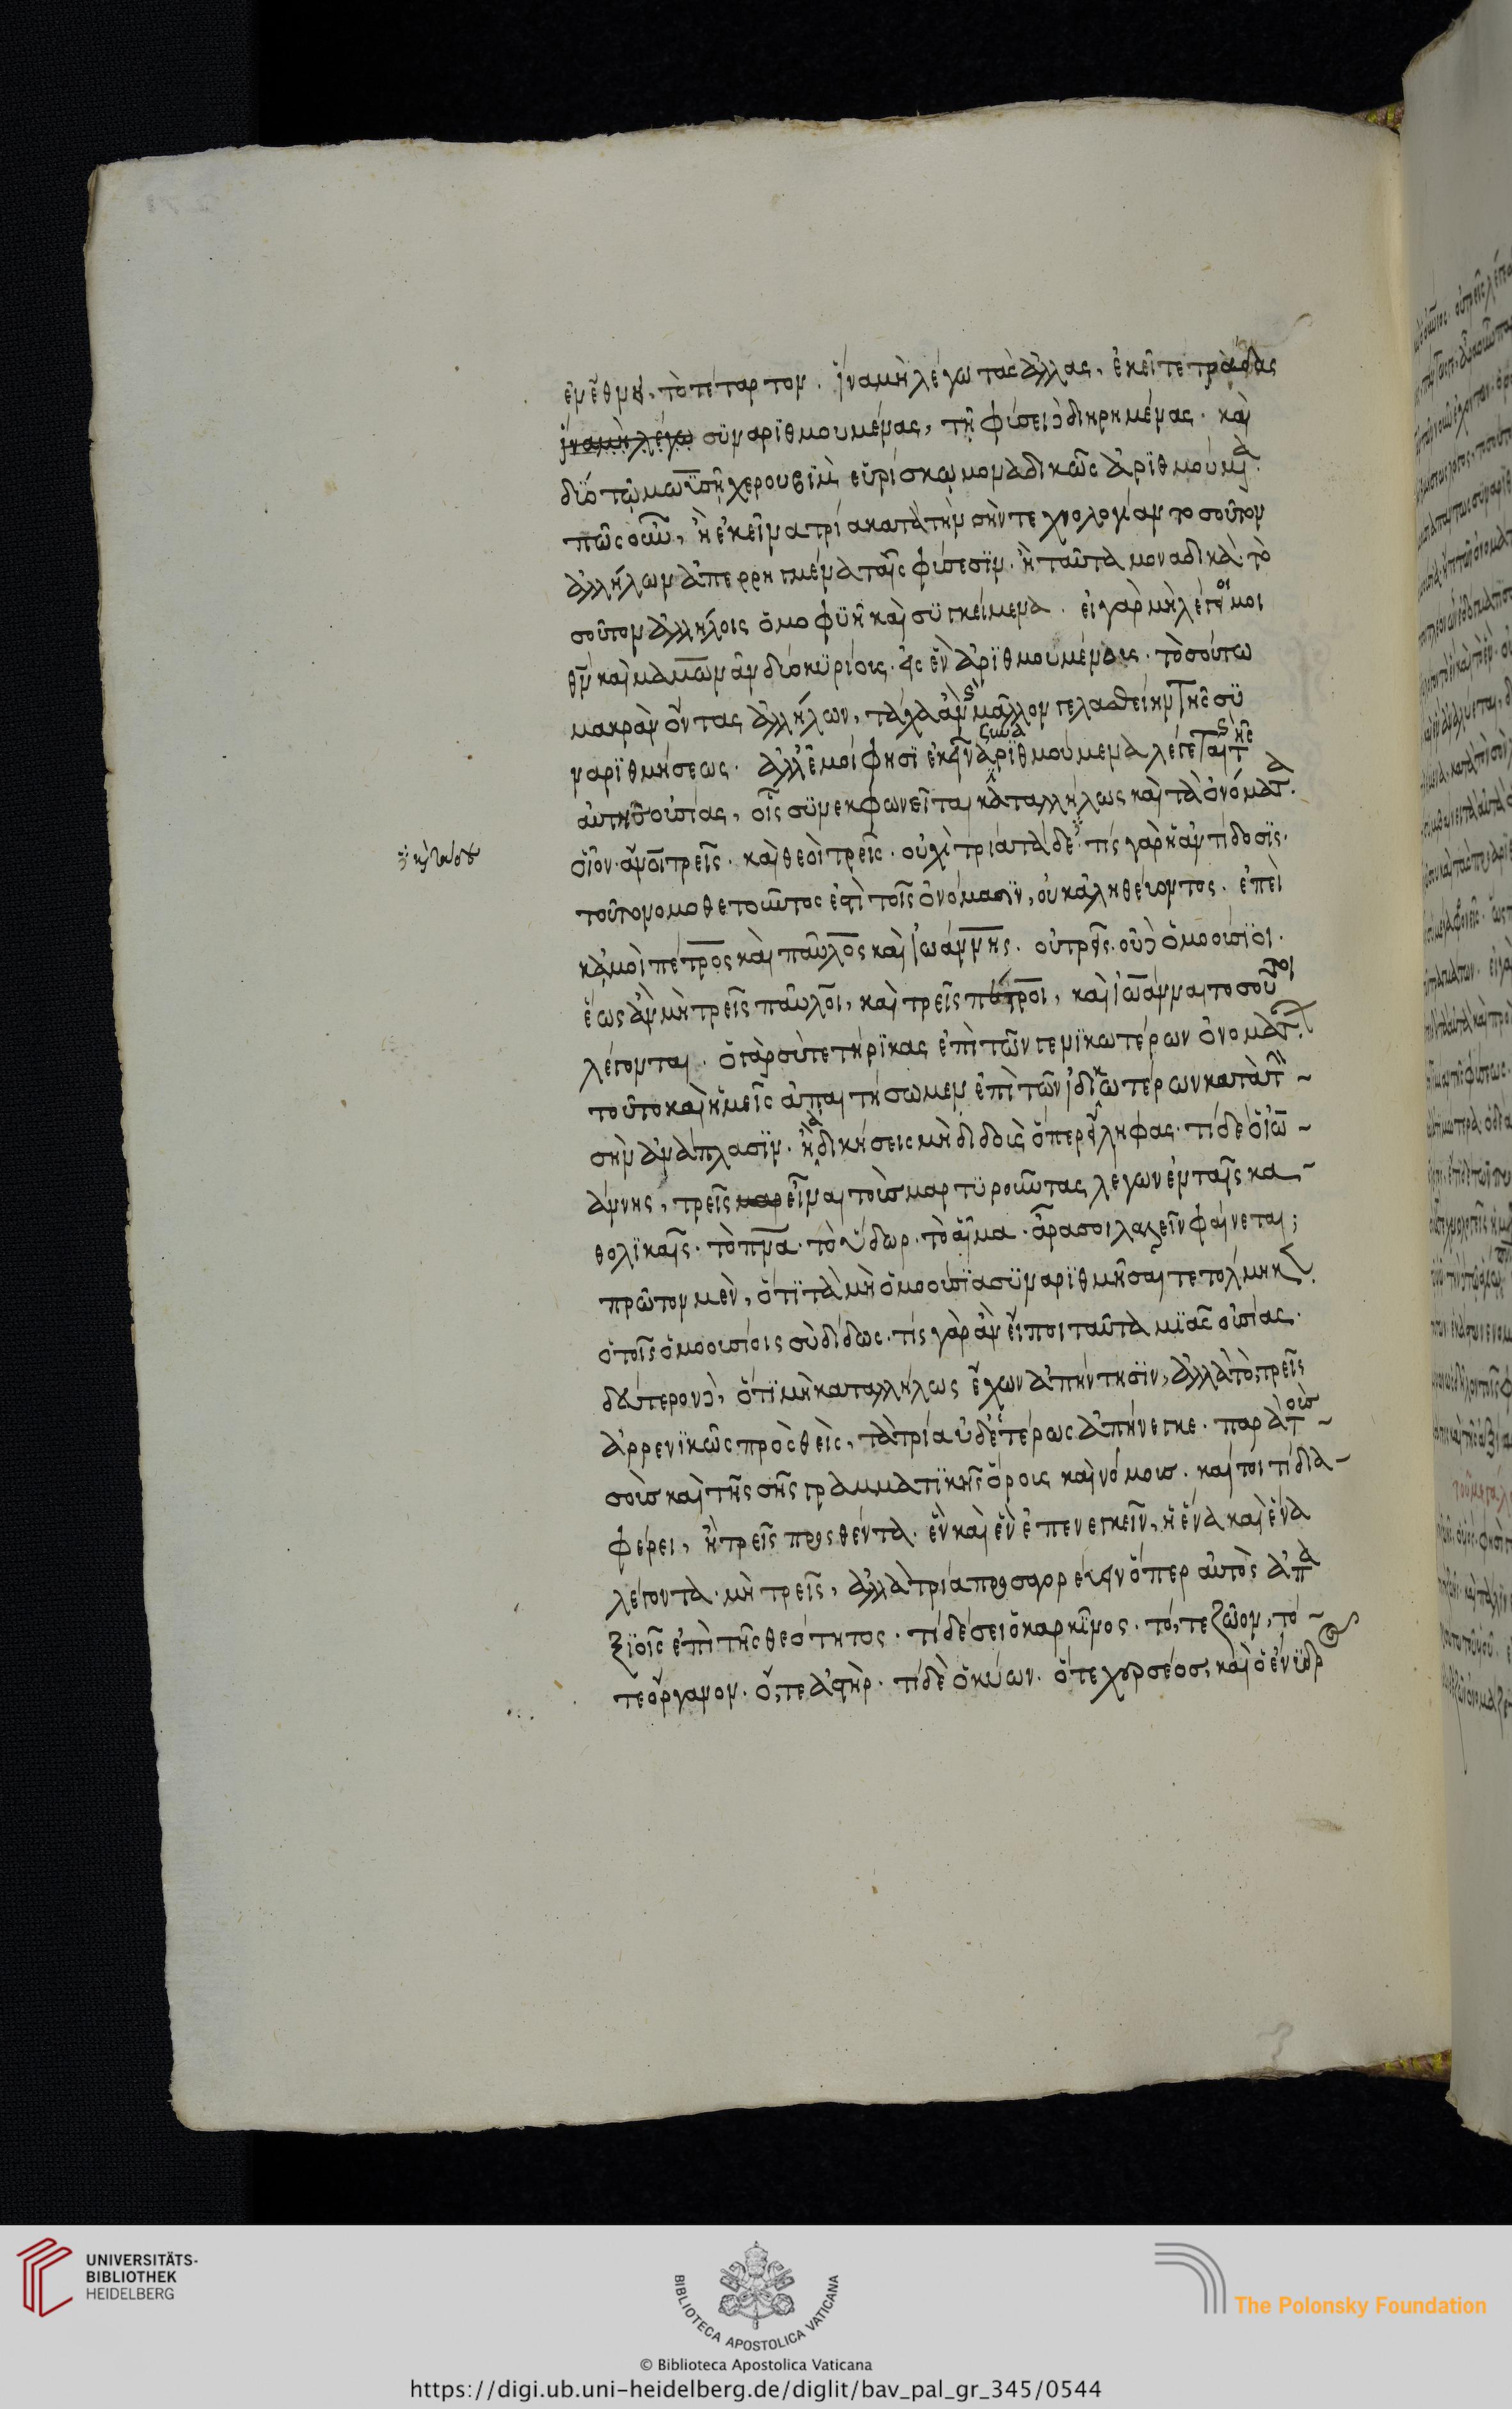 ἐμέθμει, τὸ τέταρτον. ἵνα μὴ λέγω τὰς ἄλλας, ἐκεῖ τετράδας
ἵνα μὴ λέγω συναριθμουμένας, τῇ φύσει διῃρημένας. καὶ
δύο τῷ μωϋσῇ χερουβὶμ εὑρίσκω μοναδικῶς ἀριθμούμενα.
πῶς οὖν, ἢ ἐκεῖνα τρία κατὰ τὴν σὴν τεχνολογίαν τοσοῦτον
ἀλλήλων ἀπερρηγμένα ταῖς φύσεσιν. ἢ ταῦτα μοναδικὰ το
σοῦτον ἀλλήλοις ὁμοφυῆ καὶ συγκείμενα. εἰ γὰρ μὴ λέγοιμι
θν καὶ μαμωνᾶν δύο κυρίους εἰς ἓν ἀριθμουμένους. τοσούτω
μακρὰν ὄντας ἀλλήλων, τάχα ἂν μᾶλλον γελασθείην τῆς συ
ναριθμήσεως. ἀλλ' ἐμοί φησι ἐκεῖνα ἀριθμούμενα λέγεται τῆς
αὐτῆς οὐσίας, οἷς συνεκφωνεῖται καταλλήλως καὶ τὰ ὀνόματα.
οἷον ἄνοι τρεῖς. καὶ θεοὶ τρεῖς. οὐχὶ τρία τάδε. τίς γὰρ ἡ ἀντίδοσις.
τοῦτο νομοθετοῦντος ἐστὶ τοῖς ὀνόμασιν, οὐκ ἀληθεύοντος. ἐπεὶ
κἀμοὶ πέτρος καὶ παῦλος καὶ ἰωάννης. οὐ τρεῖς. οὐδὲ ὁμοούσιοι.
ἕως ἂν μὴ τρεῖς παῦλοι, καὶ τρεῖς πέτροι, καὶ ἰωάνναι τοσοῦτοι
λέγονται. ὃ γὰρ σὺ τετήρηκας ἐπὶ τῶν γενικωτέρων ὀνομάτων
τοῦτο καὶ ἡμεῖς ἀπαιτήσωμεν ἐπὶ τῶν ἰδικωτέρων κατὰ τὴν
σὴν ἀνάπλασιν. ἢ ἀδικήσεις μὴ διδοὺς ὅπερ εἴληφας. τί δὲ ὁ ἰω
άννης, τρεῖς εἶναι τοὺς μαρτυροῦντας λέγων ἐν ταῖς κα
θολικαῖς. τὸ πνα. τὸ ὕδωρ. τὸ αἷμα. ἆρα σοι ληρεῖν φαίνεται;
πρῶτον μὲν, ὅτι τὰ μὴ ὁμοούσια συναριθμῆσαι τετόλμηκεν.
ὃ τοῖς ὁμοουσίοις σὺ δίδως. τίς γὰρ ἂν εἴποι ταῦτα μιᾶς οὐσίας.
δεύτερον δὲ, ὅτι μὴ καταλλήλως ἔχων ἀπήντησεν, ἀλλὰ τὸ, τρεῖς
ἀρρενικῶς προσθεὶς, τὰ τρία οὐδετέρως ἀπήνεγκε. παρὰ τοὺς
σοὺς καὶ τῆς σῆς γραμματικῆς ὅρους καὶ νόμους. καίτοι τί δια
φέρει, ἢ τρεῖς προσθέντα. ἓν καὶ ἓν ἐπενεγκεῖν, ἢ ἕνα καὶ ἕνα
λέγοντα. μὴ τρεῖς, ἀλλὰ τρία προσαγορεύειν ὅπερ αὐτὸς ἀπα
ξιοῖς ἐπὶ τῆς θεότητος. τί δέ σει ὁ καρκῖνος. τό, τε ζῶον, τό
τε ὄργανον. ὅ, τε ἀστήρ. τί δὲ ὁ κύων. ὅ τε χερσαῖος, καὶ ὁ ἔνυδρος
© Biblioteca Apostolica Vaticana
UNIVERSITÄTS-
BIBLIOTHEK
HEIDELBERG
BIBLIOTECA APOSTOLICA VATICANA
The Polonsky Foundation
https://digi.ub.uni-heidelberg.de/diglit/bav_pal_gr_345/0544